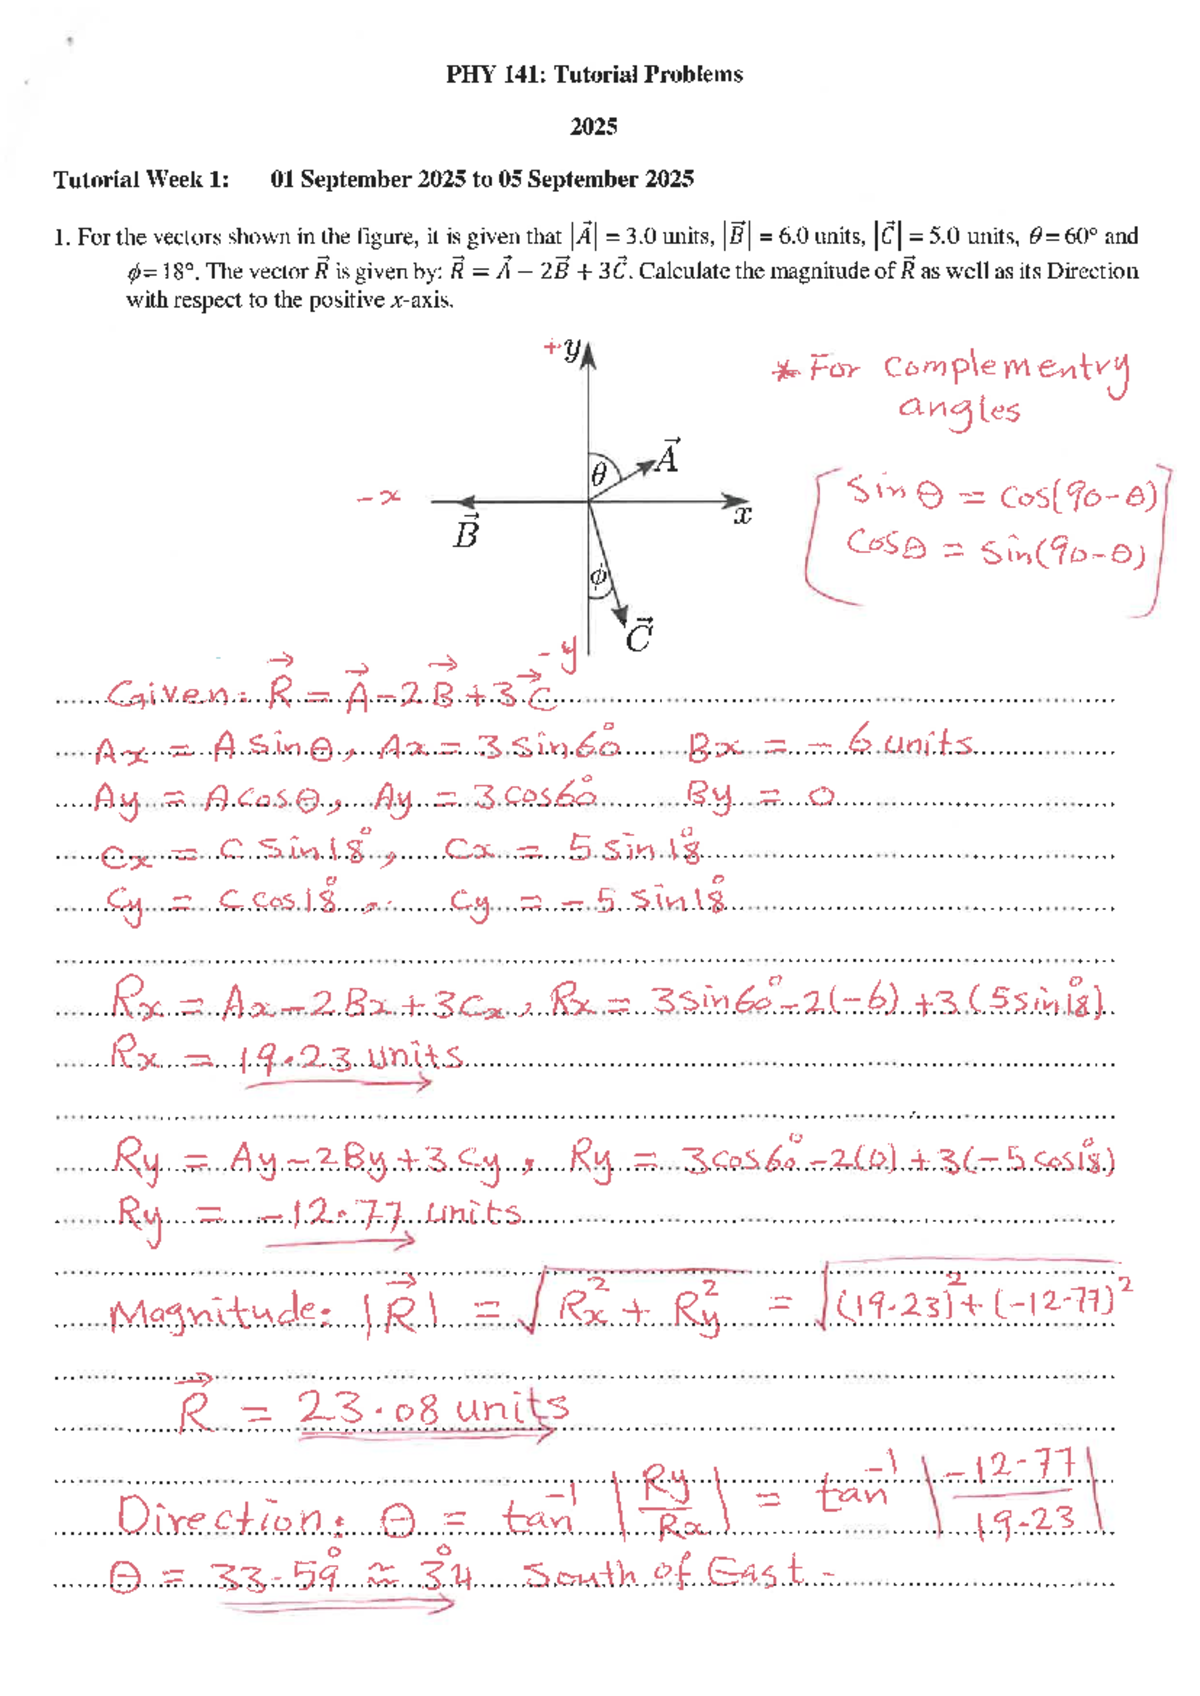 PHY 141: Tutorial Problems
2025
Tutorial Week 1: 01 September 2025 to 05 September 2025
1. For the vectors shown in the figure, it is given that |A⃗| = 3.0 units, |B⃗| = 6.0 units, |C⃗| = 5.0 units, θ= 60° and
ϕ= 18°. The vector R⃗ is given by: R⃗ = A⃗ − 2B⃗ + 3C⃗. Calculate the magnitude of R⃗ as well as its Direction
with respect to the positive x-axis.
+y
* For Complementry
angles
θ
A⃗
-x
x
B⃗
Sin θ = Cos(90-θ)
Cosθ = Sin(90-θ)
ϕ
C⃗
-y
Given: R⃗ = A⃗ - 2B⃗ + 3C⃗
Ax = A Sinθ, Ax = 3 Sin60° Bx = - 6 units
Ay = A cosθ, Ay = 3 cos60° By = 0
Cx = C Sin18°, Cx = 5 Sin18°
Cy = C cos18°, Cy = - 5 Sin18°
Rx = Ax - 2Bx + 3Cx, Rx = 3sin60° - 2(-6) + 3(5sin18°)
Rx = 19.23 units
Ry = Ay - 2By + 3Cy, Ry = 3cos60° - 2(0) + 3(-5cos18°)
Ry = -12.77 units
Magnitude: |R⃗| = √(Rx² + Ry²) = √((19.23)² + (-12.77)²)
R⃗ = 23.08 units
Direction: θ = tan⁻¹ |Ry/Rx| = tan⁻¹ |-12.77/19.23|
θ = 33.59° ≈ 34° South of East.